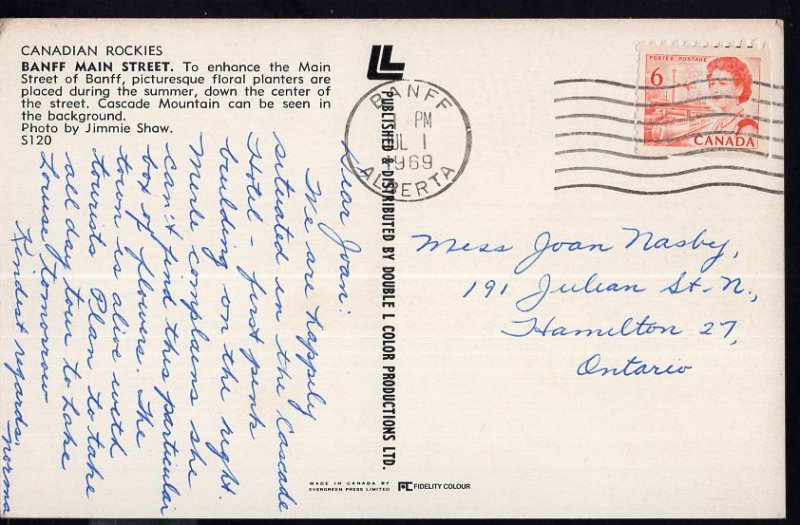 CANADIAN ROCKIES
BANFF MAIN STREET. To enhance the Main
Street of Banff, picturesque floral planters are
placed during the summer, down the center of
the street. Cascade Mountain can be seen in
the background.
Photo by Jimmie Shaw.
S120
Dear Joan:
We are happily
situated in the Cascade
Hotel - first pink
building on the right.
Merle complains she
can't find this particular
box of flowers. The
town is alive with
tourists Plan to take
all day tour to Lake
Louise tomorrow
Kindest regards,
Norma
PUBLISHED & DISTRIBUTED BY DOUBLE L COLOR PRODUCTIONS LTD.
LL
BANFF
PM
JUL 1
1969
ALBERTA
POSTES POSTAGE
6
CANADA
Miss Joan Nasby,
191 Julian St. N.,
Hamilton 27,
Ontario
MADE IN CANADA BY
EVERGREEN PRESS LIMITED
FIDELITY COLOUR